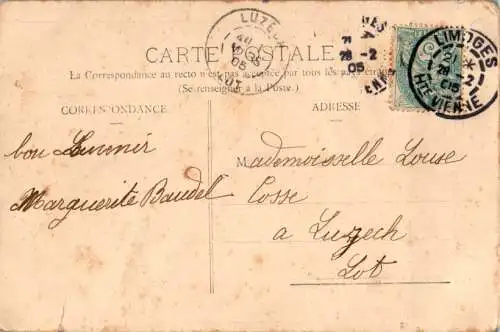 CARTE POSTALE
La Correspondance au recto n'est pas acceptée par tous les pays étrangers
(Se renseigner à la Poste.)
CORRESPONDANCE
ADRESSE
bon Souvenir
Marguerite Baudel
Mademoiselle Louse
Cosse
a Luzech
Lot
LUZECH
05
LOT
28-2
05
LIMOGES
28-2
05
HTE VIENNE